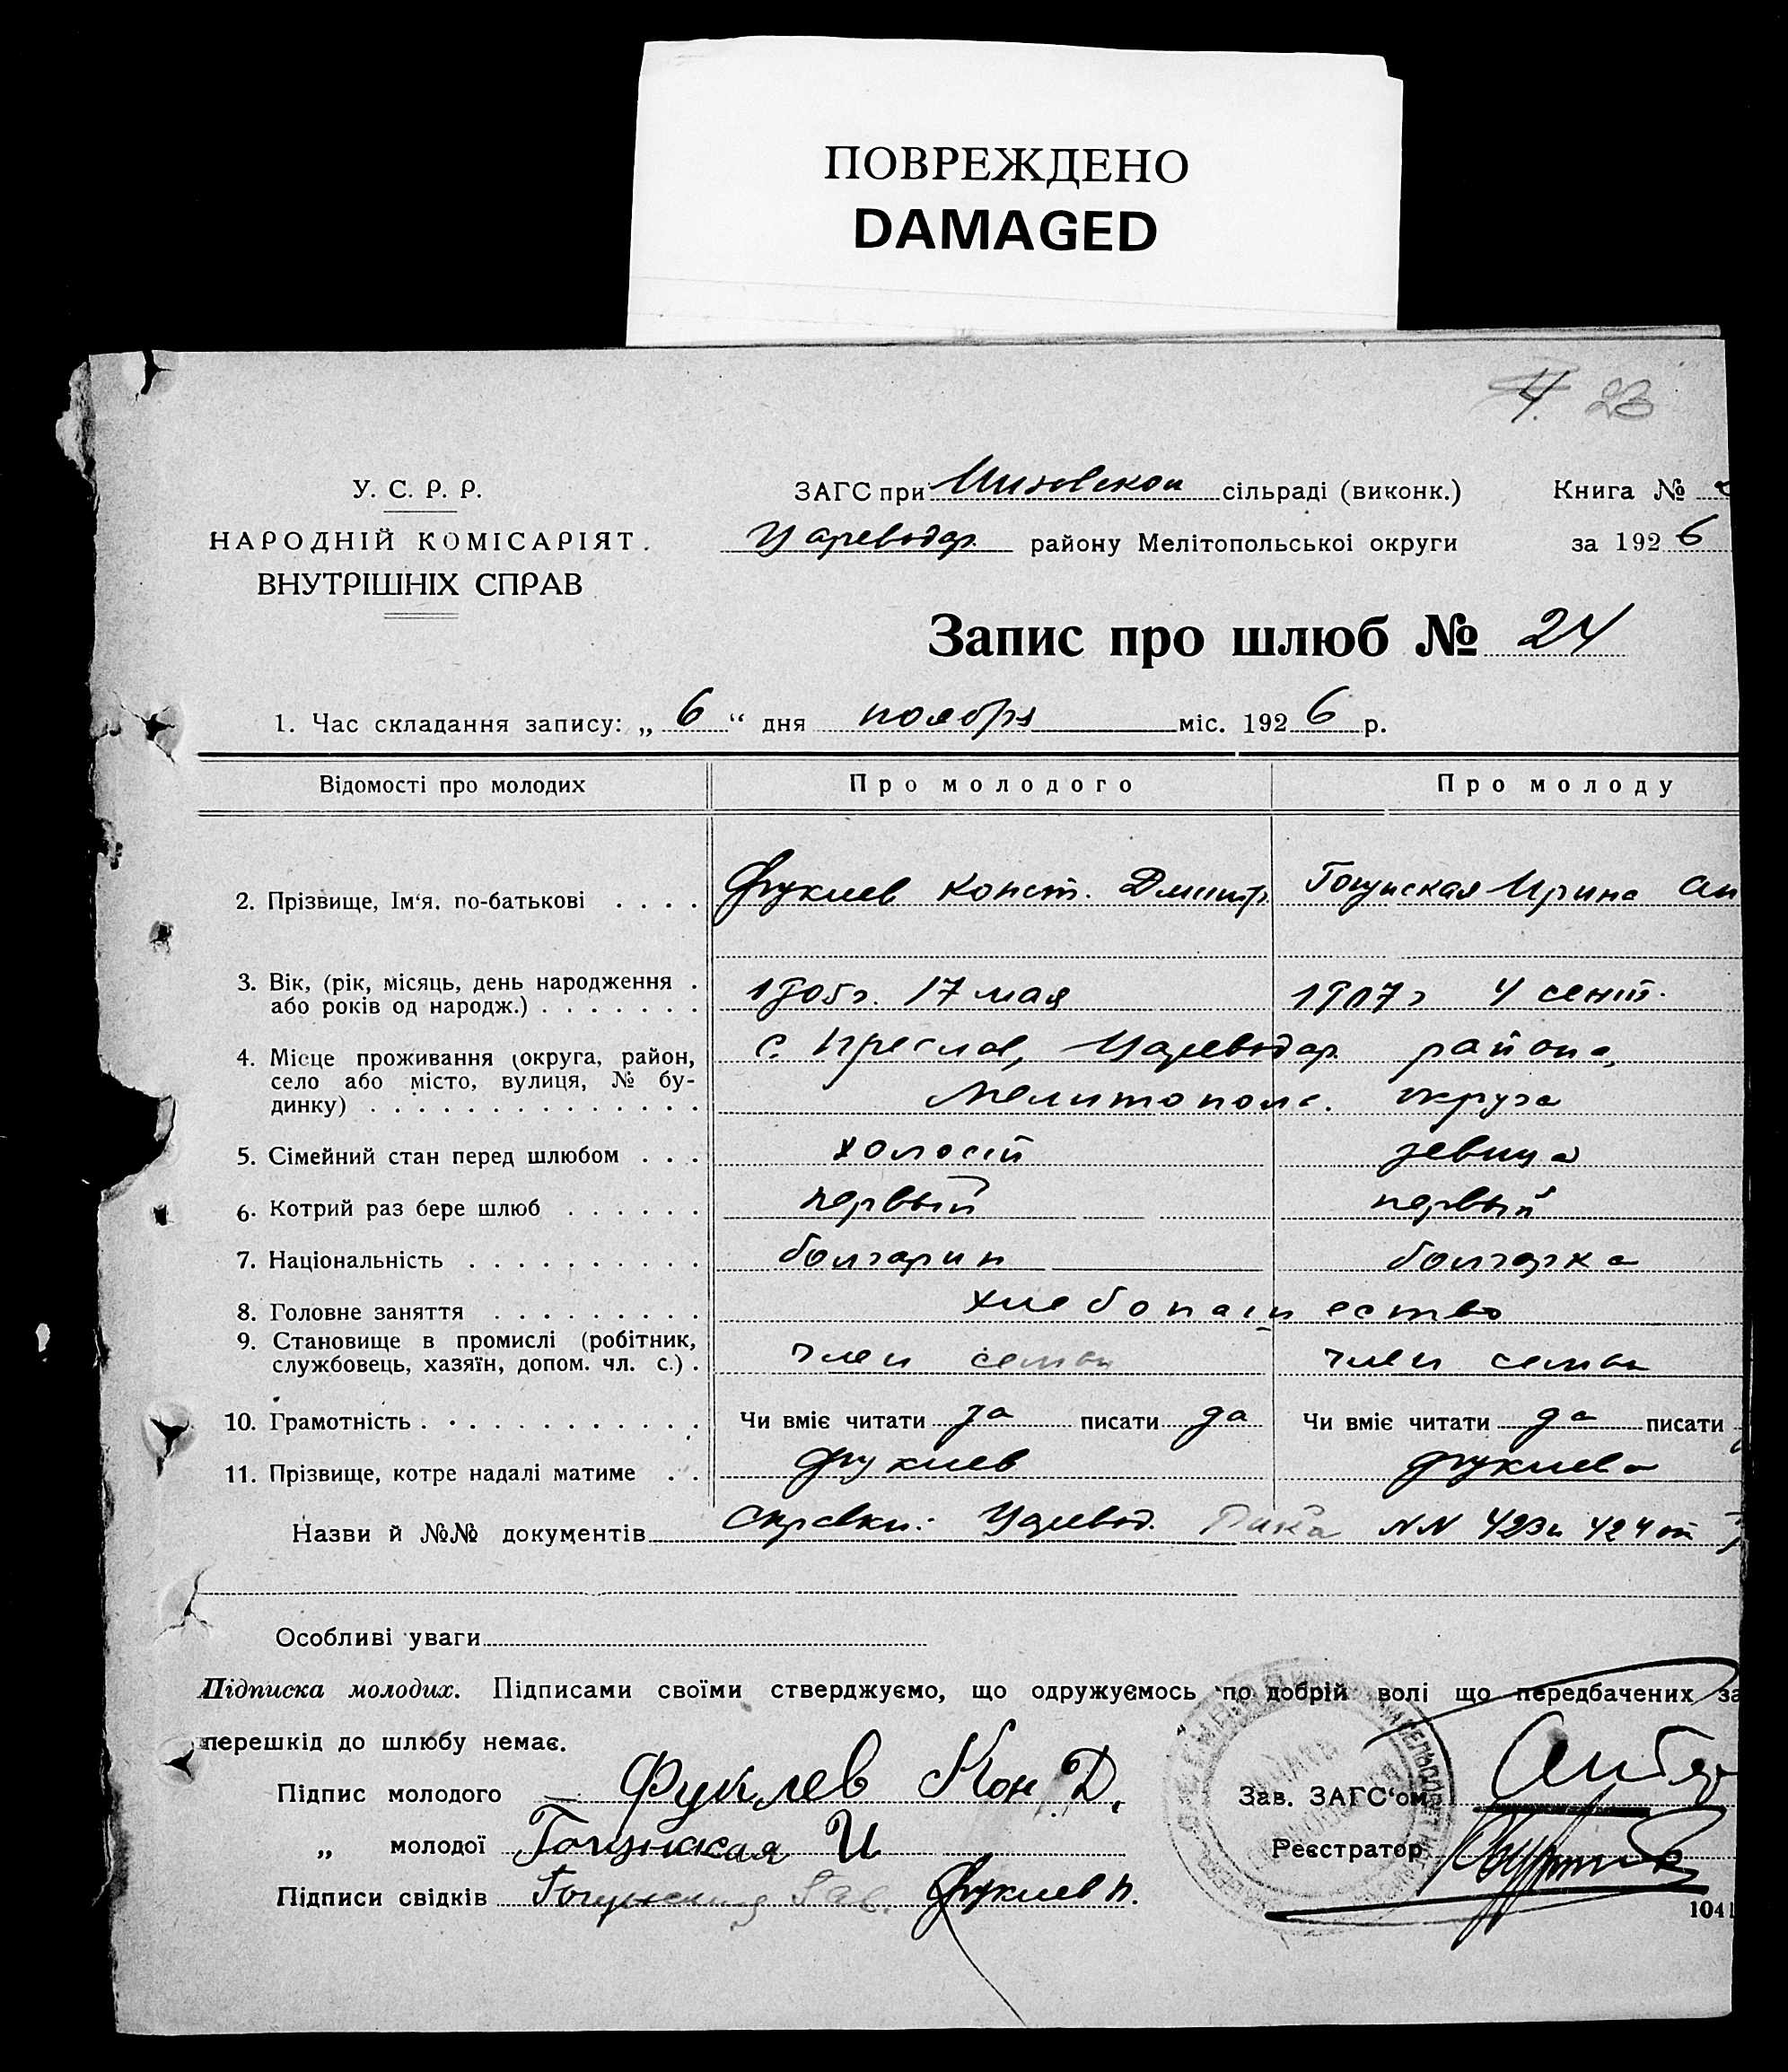 ПОВРЕЖДЕНО
DAMAGED
4. 23
У. С. Р. Р.
НАРОДНІЙ КОМІСАРІЯТ.
ВНУТРІШНІХ СПРАВ
ЗАГС при сільраді (виконк.) Книга №
Цареводар. району Мелітопольської округи за 1926
Запис про шлюб № 24
1. Час складання запису: „ 6 “ дня ноября міс. 1926 р.
Відомості про молодих Про молодого Про молоду
2. Прізвище, Ім‘я, по-батькові . . . . Фуклев Конст. Дмитр. Ирина Ан
3. Вік, (рік, місяць, день народження . або років од народж.) . . . . . . . 1905г. 17 мая 1907г 4 сент.
4. Місце проживання (округа, район, село або місто, вулиця, № бу-
динку) . . . . . . . . . . . . . . с. Преслав, Цареводар. района, Мелитопол. округа
5. Сімейний стан перед шлюбом . . . холостй девица
6. Котрий раз бере шлюб . . . . . . первый первый
7. Національність . . . . . . . . . . болгарин болгарка
8. Головне заняття . . . . . . . . . хлебопашество
9. Становище в промислі (робітник, службовець, хазяїн, допом. чл. с.) . член семьи член семьи
10. Грамотність . . . . . . . . . . . . Чи вміє читати да писати да Чи вміє читати да писати
11. Прізвище, котре надалі матиме . . Фуклев Фуклева
Назви й №№ документів Справки: Царевод. Рика NN 423 и 424 от
Особливі уваги
Підписка молодих. Підписами своїми стверджуємо, що одружуємось по добрій волі що передбачених за
перешкід до шлюбу немає.
Підпис молодого Фуклев Кон. Д. Зав. ЗАГС‘ом
„ молодої И Реєстратор
Підписи свідків Фуклев П.
1041